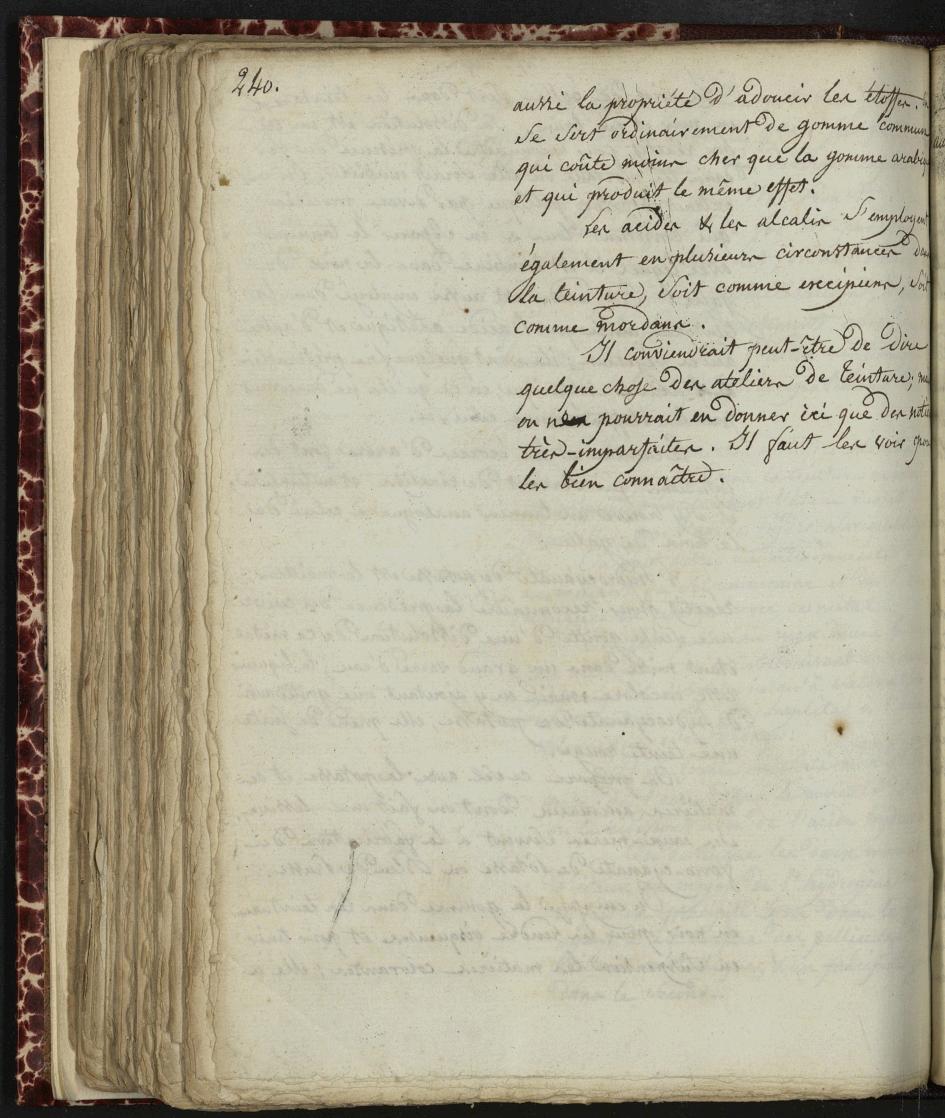 240.
aussi la propriété d'adoucir les étoffes.
Se sert ordinairement de gomme commun
qui coûte moins cher que la gomme arabiq
et qui produit le même effet.
Les acides & les alcalis s'employent
également en plusieurs circonstances dans
la teinture, soit comme excipiens, soit
comme mordans.
Il conviendrait peut-être de dire
quelque chose des ateliers de teinture;
on n'en pourrait en donner ici que des noti
très-imparfaites. Il faut les voir pou
les bien connaître.